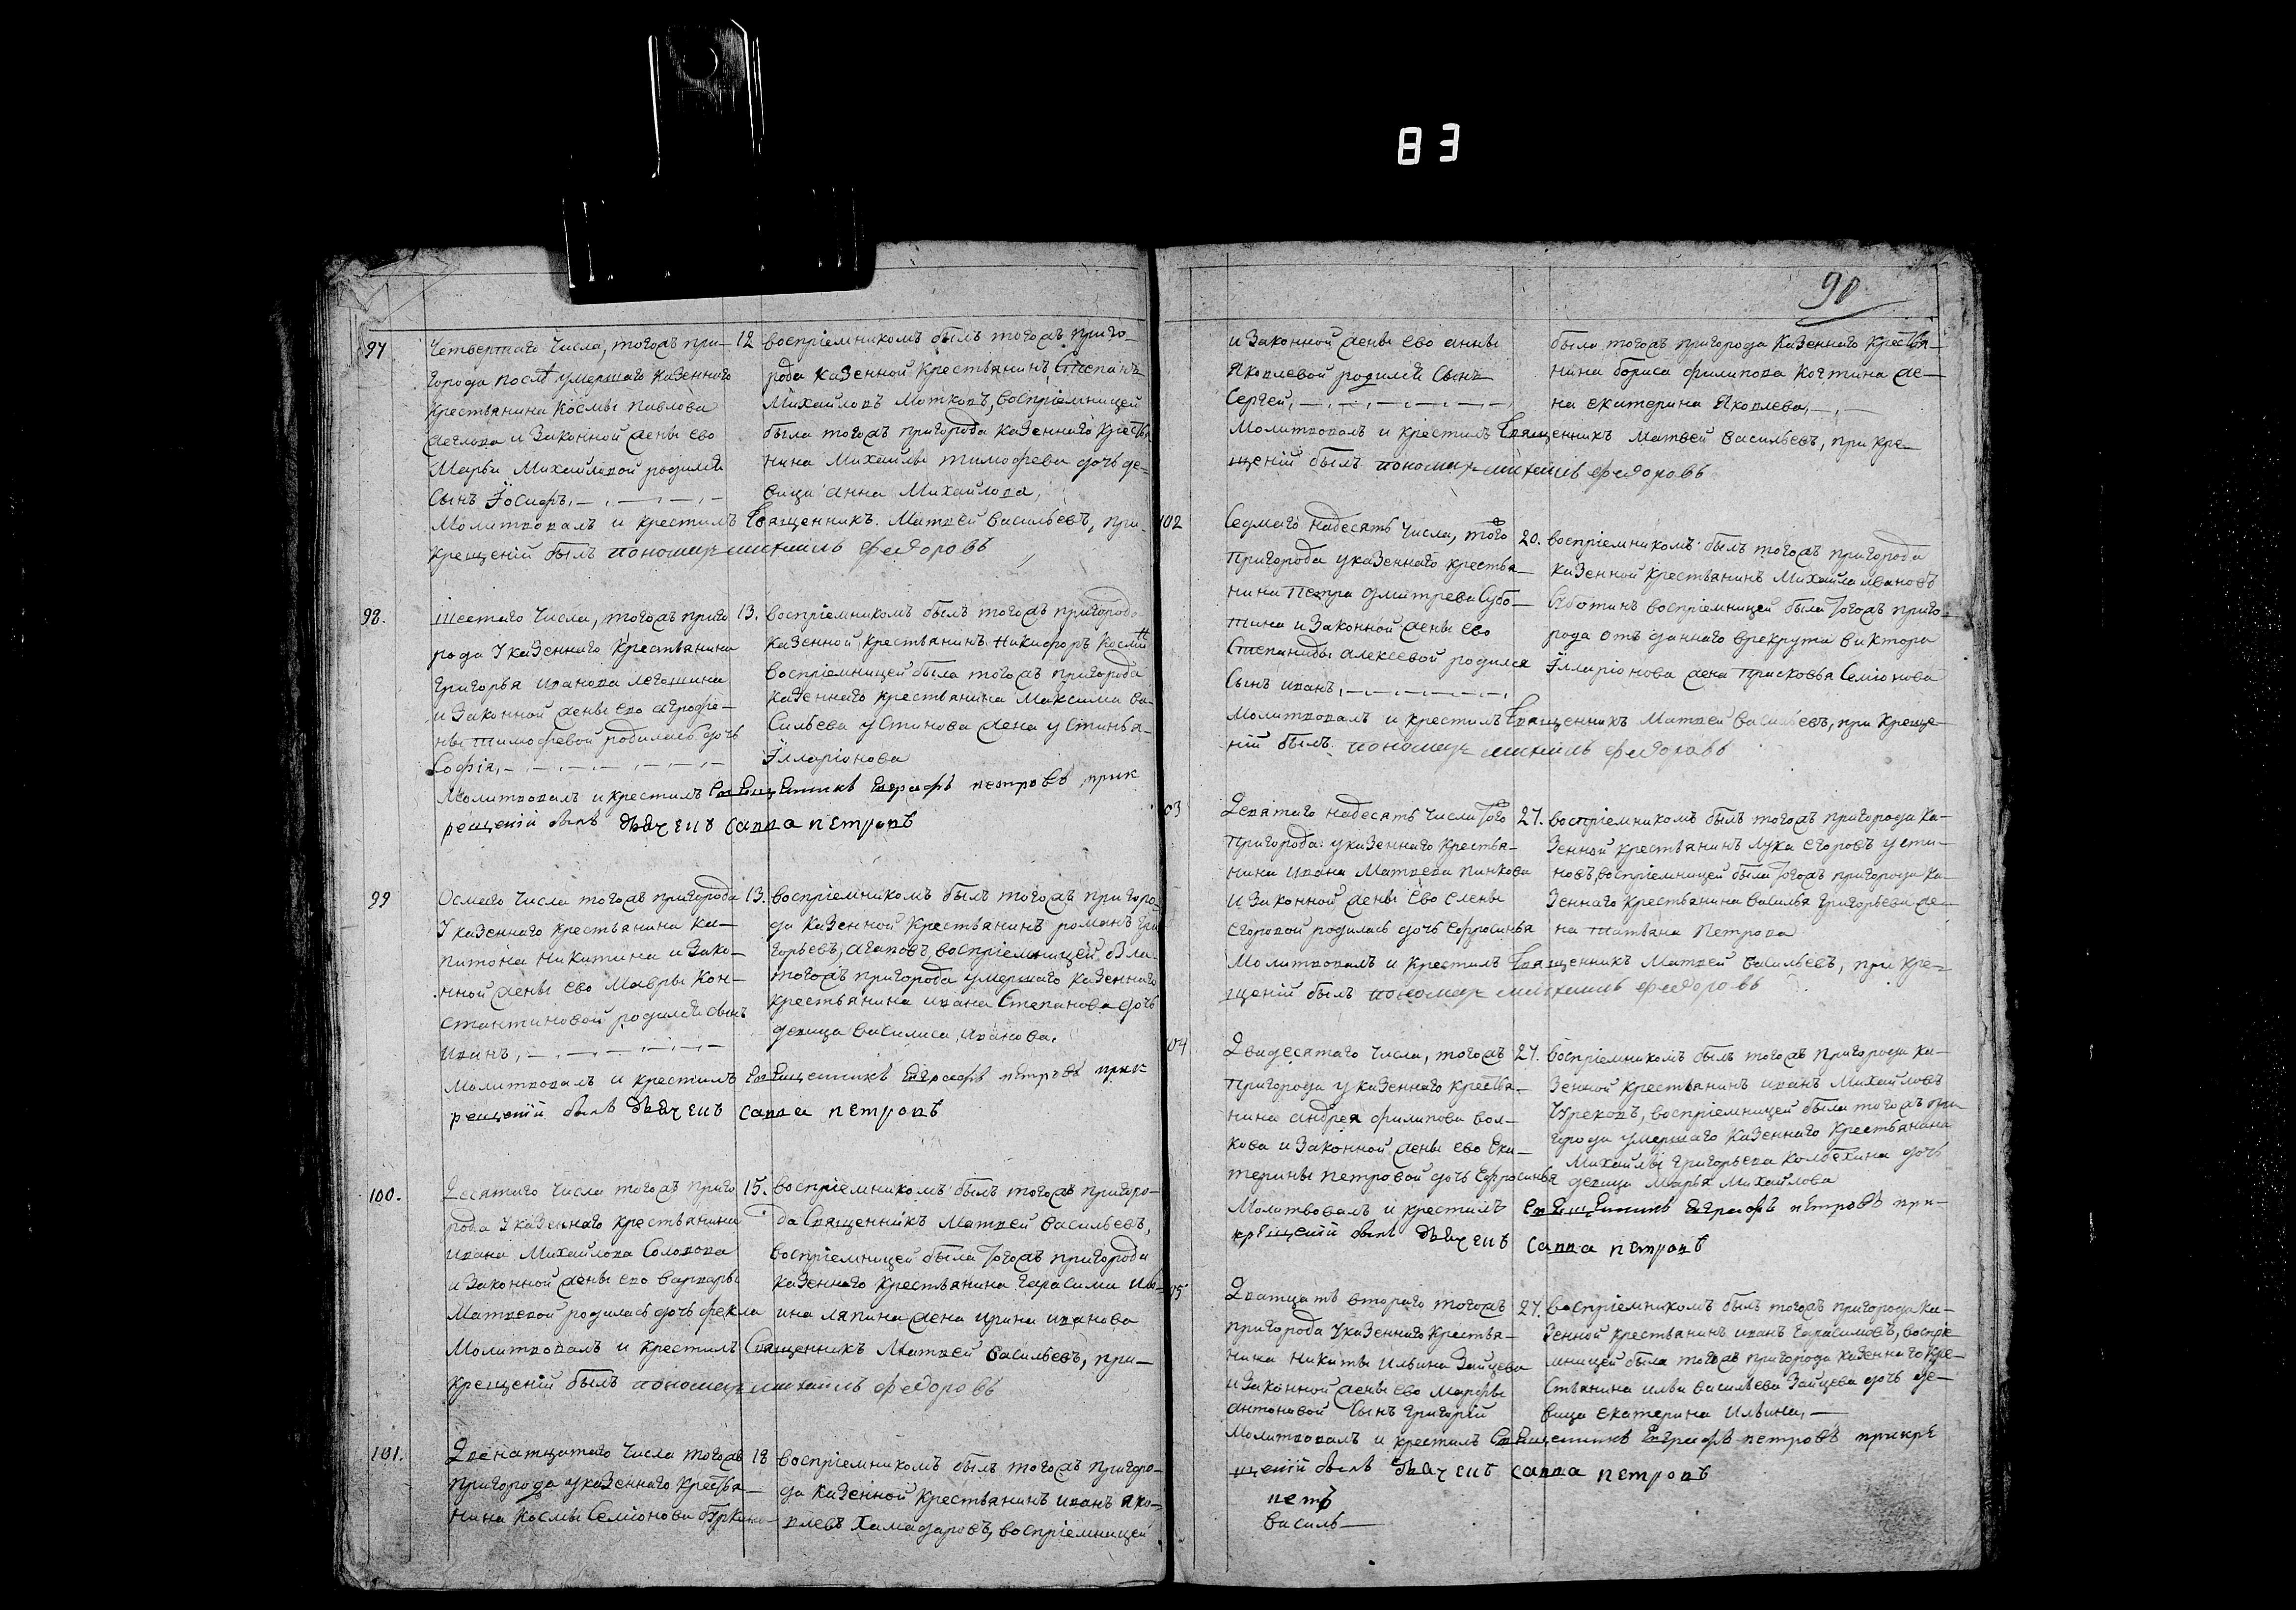 83
90
97
Четвертаго числа, тогожъ при-
города послѣ умершаго казеннаго
крестьянина Космы Павлова
и законной жены ево
Марьи Михайловой родился
сынъ Іосифъ,
12
воспріемникомъ былъ тогожъ приго-
рода казенной крестьянинъ Степанъ
Михайловъ Мотковъ, воспріемницей
была тогожъ пригорода казеннаго крестья
нина Михайлы Тимофеева дочь де-
вица Анна Михайлова,
Молитвовалъ и крестилъ Священникъ Матвей Васильевъ, при
крещеніи былъ пономарь Михаилъ Федоровъ
98.
Шестаго числа, тогожъ приго
рода у казеннаго крестьянина
Григорья Иванова Легошина
и законной жены ево Агрофе-
ны Тимофевой родилась дочь
Софія,
13.
воспріемникомъ былъ тогожъ пригорода
казенной крестьянинъ Никифоръ Косми
воспріемницей была тогожъ пригорода
казеннаго крестьянина Максима Ва-
сильева Устинова жена Устинья
Илларіонова
Молитвовалъ и крестилъ Священникъ Евграфъ Петровъ прик
рещеніи былъ дьячекъ Савва Петровъ
99
Осмаго числа тогожъ пригорода
у казеннаго крестьянина Ка-
питона Никитина и зако-
нной жены ево Мавры Кон-
стантиновой родился сынъ
Иванъ,
13.
воспріемникомъ былъ тогожъ пригоро-
да казенной крестьянинъ Романъ Гри
горьевъ, Агаповъ, воспріемницей была
тогожъ пригорода умершаго казеннаго
крестьянина Ивана Степанова дочь
девица Василиса Иванова,
Молитвовалъ и крестилъ Священникъ Евграфъ Петровъ прик
рещеніи былъ дьячекъ Савва Петровъ
100.
Десятаго числа тогожъ приго
рода у казеннаго крестьянина
Ивана Михайлова Соловова
и законной жены ево Варвары
Матвевой родилась дочь Фекла
15.
воспріемникомъ былъ тогожъ пригоро-
да Священникъ Матвей Васильевъ,
воспріемницей была тогожъ пригорода
казеннаго крестьянина Гарасима Иль-
ина Ляпина жена Ирина Иванова
Молитвовалъ и крестилъ Священникъ Матвей Васильевъ, при-
крещеніи былъ пономарь Михаилъ Федоровъ
101.
Двенатцатаго числа тогожъ
пригорода у казеннаго крестья-
нина Космы Семіонова
18
воспріемникомъ былъ тогожъ пригоро-
да казенной крестьянинъ Иванъ Яко-
влевъ Хамадаровъ, воспріемницей
и законной жены ево Анны
Яковлевой родился сынъ
Сергей,
была тогожъ пригорода казеннаго крестья-
нина Бориса Филипова жe-
на Екатерина Яковлева,
Молитвовалъ и крестилъ Священникъ Матвей Васильевъ, при кре-
щеніи былъ пономарь Михаилъ Федоровъ
102
Седмаго надесять числа, тогожъ
пригорода у казеннаго крестья-
нина Петра Дмитрева Субо-
тина и законной жены ево
Степаниды Алексевой родился
сынъ Иванъ,
20.
воспріемникомъ былъ тогожъ пригорода
казенной крестьянинъ Михайла Ивановъ
Суботинъ воспріемницей была тогожъ приго-
рода отъ даннаго врекруты Виктора
Илларіонова жена Прасковья Семіонова
Молитвовалъ и крестилъ Священникъ Матвей Васильевъ, при креще-
ніи былъ пономарь Михаилъ Федоровъ
03
Девятаго надесять числа тогожъ
пригорода: у казеннаго крестья-
нина Ивана Матвева Пинкова
и законной жены ево Елены
Егоровой родилась дочь Ефросинья
27.
воспріемникомъ былъ тогожъ пригорода ка-
зенной крестьянинъ Лука Егоровъ Усти-
новъ, воспріемницей была тогожъ пригорода ка-
зеннаго крестьянина Василья Григорьева же-
на Татьяна Петрова
Молитвовалъ и крестилъ Священникъ Матвей Васильевъ, при кре-
щеніи былъ пономарь Михаилъ Федоровъ
04
Двадесятаго числа, тогожъ
пригорода у казеннаго крестья-
нина Андрея Филипова Вол-
кова и законной жены ево Ека-
терины Петровой дочь Ефросинья
27.
воспріемникомъ былъ тогожъ пригорода ка-
зенной крестьянинъ Иванъ Михайловъ
воспріемницей была тогожъ при-
города умершаго казеннаго крестьянина
Михайлы Григорьева дочь
девица Марья Михайлова
Молитвовалъ и крестилъ Священникъ Евграфъ Петровъ при-
крещеніи былъ дьячекъ Савва Петровъ
05
Дватцать втораго тогожъ
пригорода у казеннаго крестья-
нина Никиты Ильина Зайцева
и законной жены ево Марфы
Антоновой сынъ Григорій
27.
воспріемникомъ былъ тогожъ пригорода ка-
зенной крестьянинъ Иванъ Гарасимовъ, воспріе-
мницей была тогожъ пригорода казеннаго кре-
стьянина Ильи Васильева Зайцева дочь де-
вица Екатерина Ильина,
Молитвовалъ и крестилъ Священникъ Евграфъ Петровъ прикре
щеніи былъ дьячекъ Савва Петровъ
василь